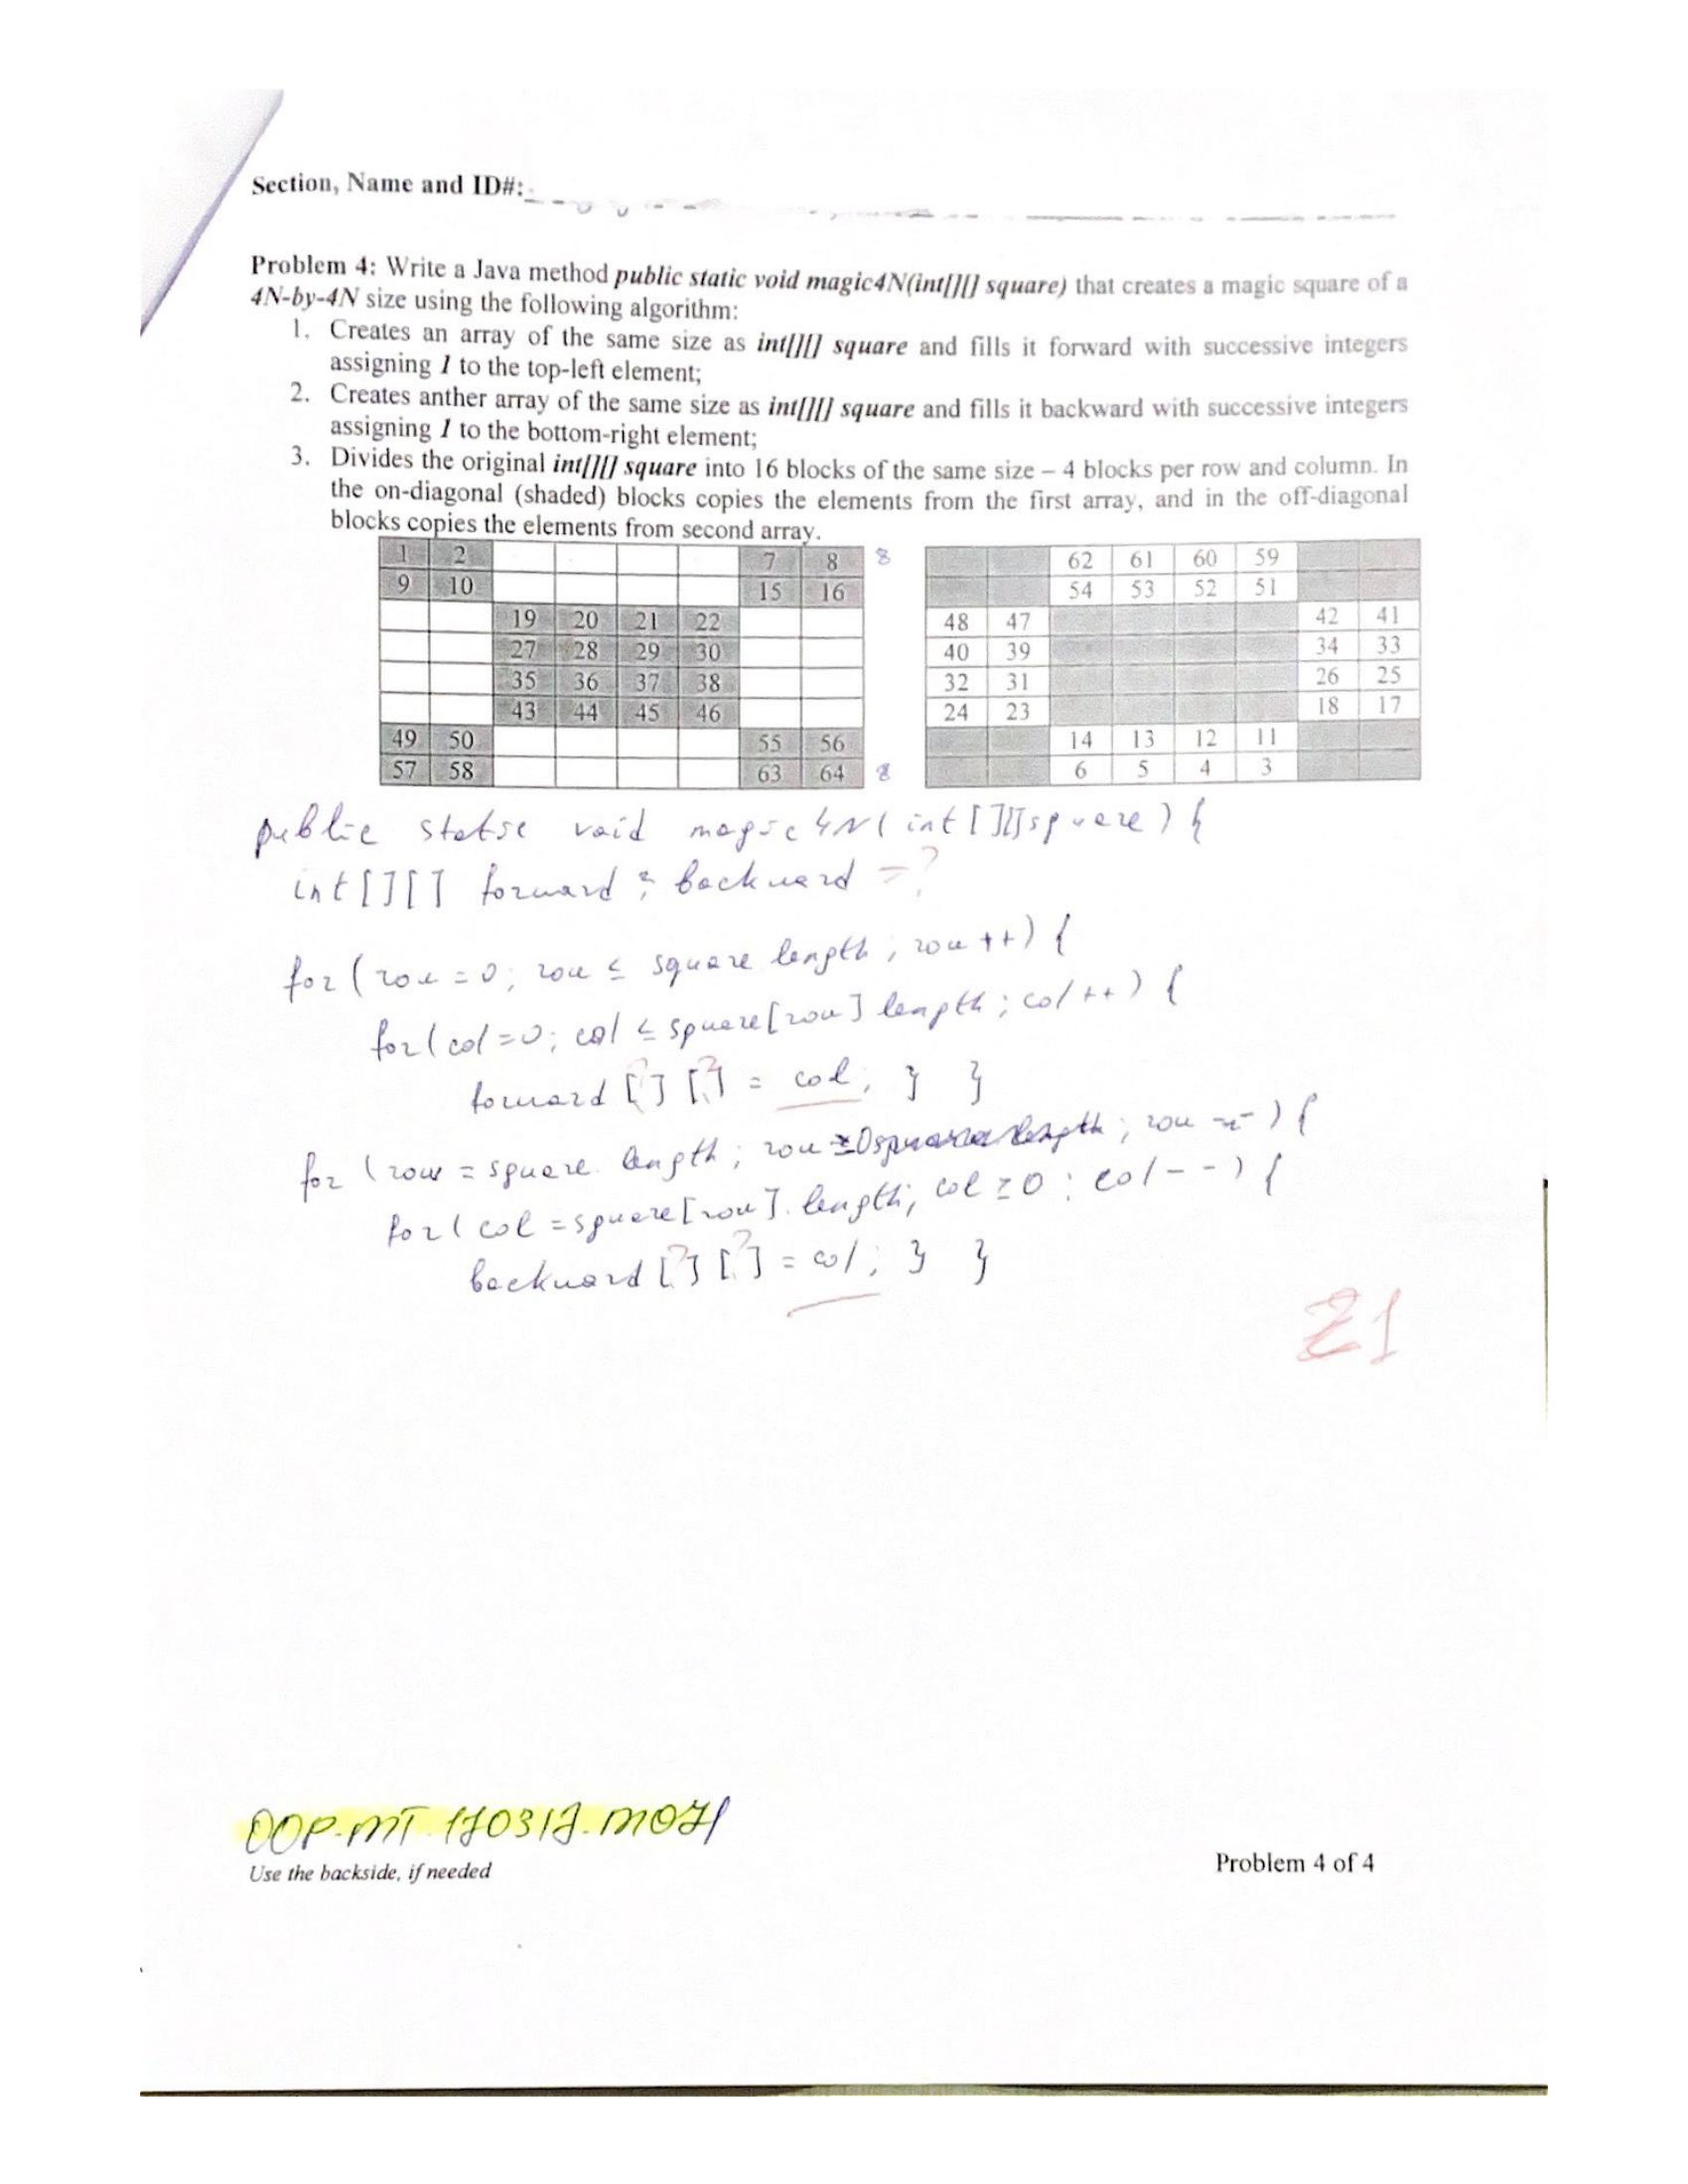 Section, Name and ID#:
Problem 4: Write a Java method public static void magic4N(int[][] square) that creates a magic square of a
4N-by-4N size using the following algorithm:
1. Creates an array of the same size as int[][] square and fills it forward with successive integers
assigning 1 to the top-left element;
2. Creates anther array of the same size as int[][] square and fills it backward with successive integers
assigning 1 to the bottom-right element;
3. Divides the original int[][] square into 16 blocks of the same size – 4 blocks per row and column. In
the on-diagonal (shaded) blocks copies the elements from the first array, and in the off-diagonal
blocks copies the elements from second array.
1 2 7 8 8 62 61 60 59
9 10 15 16 54 53 52 51
19 20 21 22 48 47 42 41
27 28 29 30 40 39 34 33
35 36 37 38 32 31 26 25
43 44 45 46 24 23 18 17
49 50 55 56 14 13 12 11
57 58 63 64 8 6 5 4 3
public static void magic4N(int[][]square){
int[][] forward ; backward = ?
for (row = 0; row ≤ square length; row ++) {
for( col = 0; col ≤ square[row] length; col ++) {
forward [?] [?] = col; } }
for ( row = square. length; row ≥ 0 ; row --) {
for( col = square[row]. length; col ≥ 0 ; col --) {
backward [?] [?] = col; } }
21
OOP-MT.170317.M071
Use the backside, if needed
Problem 4 of 4